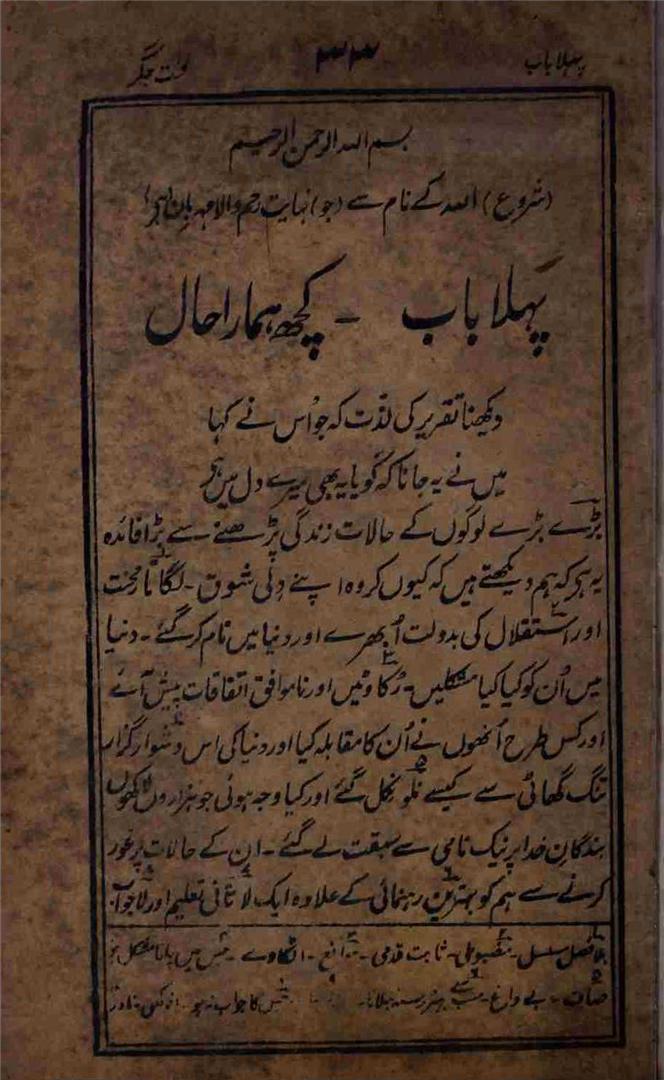 پہلا باب ۳۳ لخت جگر
بسم اللہ الرحمن الرحیم
(شروع) اللہ کے نام سے (جو) نہایت رحم والا مہربان ہے
پہلا باب ۔ کچھ ہمارا حال
دیکھنا تقریر کی لذت کہ جو اُس نے کہا
میں نے یہ جانا کہ گویا یہ بھی میرے دل میں ہے
بڑے بڑے لوگوں کے حالات زندگی پڑھنے سے بڑا فائدہ
یہ ہے کہ ہم دیکھتے ہیں کہ کیوں کر وہ اپنے دلی شوق ۔ لگاتار محنت
اور استقلال کی بدولت اُبھرے اور دنیا میں نام کر گئے ۔ دنیا
میں اُن کو کیا کیا مشکلیں ۔ رُکاوٹیں اور ناموافق اتفاقات پیش آئے
اور کس طرح اُنھوں نے اُن کا مقابلہ کیا اور دنیا کی اس دشوار گزار
تنگ گھاٹی سے کیسے نکل گئے اور کیا وجہ ہوئی جو ہزاروں لاکھوں
بندگانِ خدا پر نیک نامی سے سبقت لے گئے ۔ ان کے حالات پر غور
کرنے سے ہم کو بہترین رہنمائی کے علاوہ ایک لاثانی تعلیم اور لاجواب
بلا فصل مسلسل ۔ مضبوطی ۔ ثابت قدمی ۔ اٹکاوے ۔ جس میں جانا مشکل ہو
صاف ۔ بے داغ ۔ سب سے بہتر رستہ جس کا جواب نہ ہو